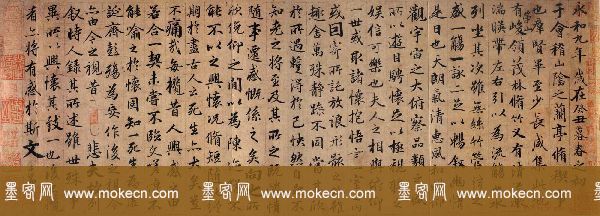 永和九年歲在癸丑暮春之初
于會稽山陰之蘭亭脩
也群賢畢至少長咸集此
有峻領茂林脩竹又有清
湍暎帶左右引以為流觴
列坐其次雖無絲竹管
盛一觴一詠亦足以暢敘
是日也天朗氣清惠風和
觀宇宙之大俯察品類
所以遊目騁懷足以極視
娛信可樂也夫人之相與
一世或取諸懷抱悟言一
或因寄所託放浪形骸之
趣舍萬殊靜躁不同
於所遇蹔得於己怏然自
知老之將至及其所之
隨事遷感慨係之矣向之
欣俛仰之間以為陳
能不以之興懷況脩短隨
期於盡古人云死生亦大
不痛哉每攬昔人興感
若合一契未嘗不臨文嗟
能喻之於懷固知一死生
誕齊彭殤為妄作後之
亦由今之視昔悲夫
敘時人錄其所述雖世殊
異所以興懷其致一也
者亦將有感於斯文
墨客网 www.mokecn.com 墨客网 www.mokecn.com 墨客网 www.mokecn.com